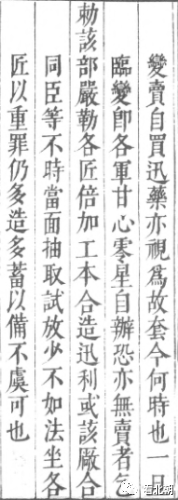 變賣自買迅藥亦視爲故套今何時也一旦
臨變卽各軍甘心零星自辦恐亦無賣者乞
勅該部嚴勒各匠倍加工本合造迅利或該厰合
同臣等不時當面抽取試放少不如法坐各
匠以重罪仍多造多蓄以備不虞可也